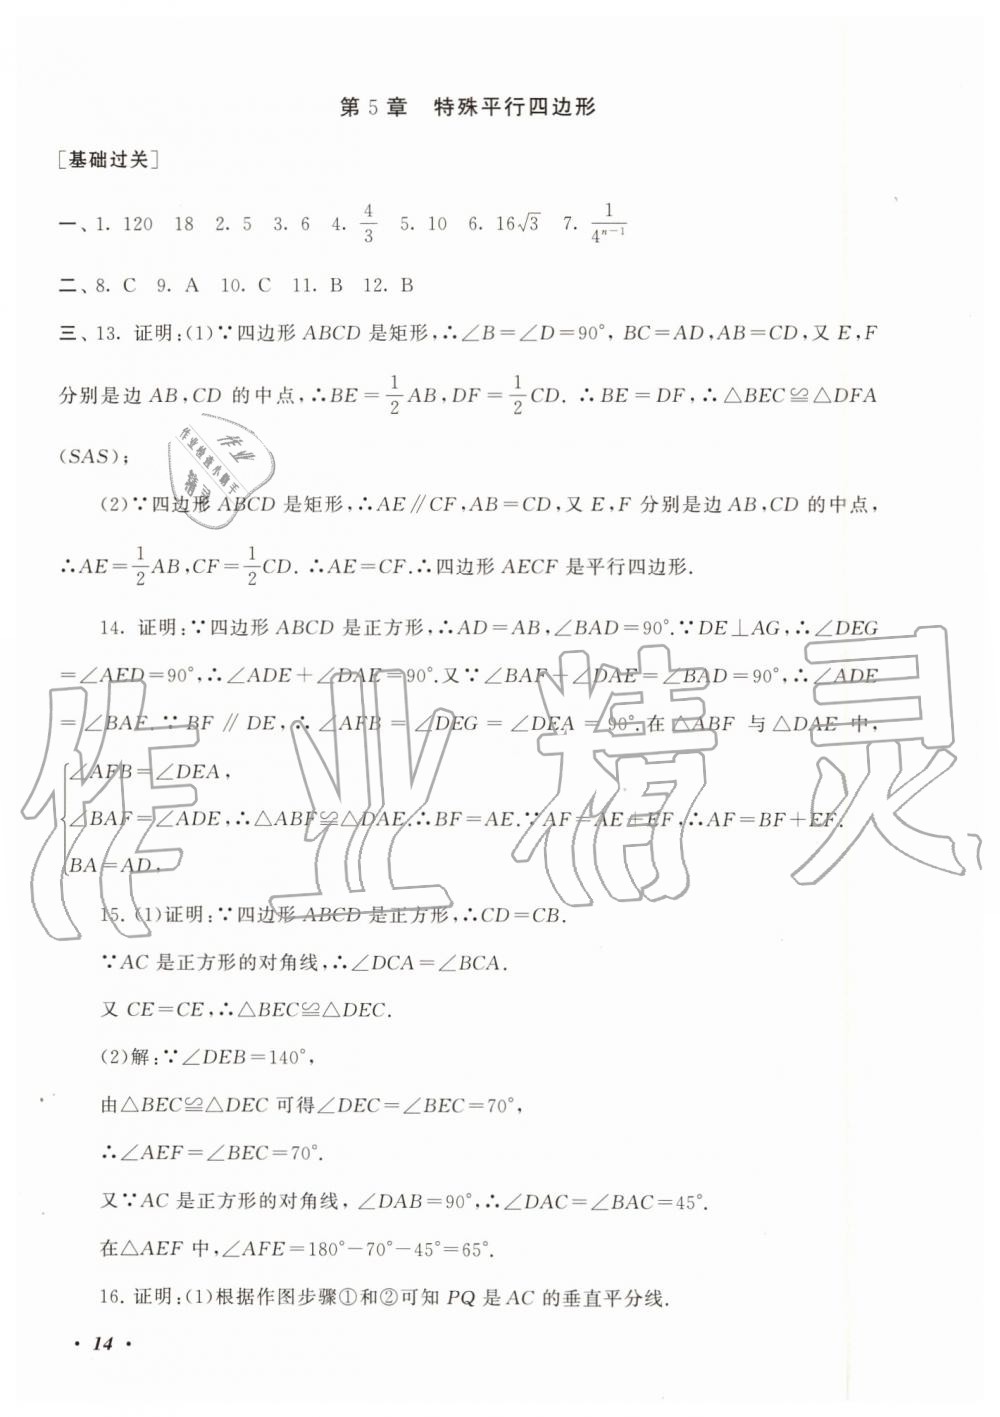 第 5 章　特殊平行四边形
[基础过关]
一、1. 120　18　2. 5　3. 6　4. 4/3　5. 10　6. 16√3　7. 1/4ⁿ⁻¹
二、8. C　9. A　10. C　11. B　12. B
三、13. 证明:(1)∵四边形 ABCD 是矩形,∴∠B=∠D=90°, BC=AD,AB=CD,又 E,F
分别是边 AB,CD 的中点,∴BE=1/2AB,DF=1/2CD. ∴BE=DF,∴△BEC≌△DFA
(SAS);
(2)∵四边形 ABCD 是矩形,∴AE∥CF,AB=CD,又 E,F 分别是边 AB,CD 的中点,
∴AE=1/2AB,CF=1/2CD. ∴AE=CF.∴四边形 AECF 是平行四边形.
14. 证明:∵四边形 ABCD 是正方形,∴AD=AB,∠BAD=90°.∵DE⊥AG,∴∠DEG
=∠AED=90°,∴∠ADE+∠DAE=90°.又∵∠BAF+∠DAE=∠BAD=90°,∴∠ADE
=∠BAF.∵BF∥DE,∴∠AFB=∠DEG=∠DEA=90°.在△ABF 与△DAE 中,
∠AFB=∠DEA,
∠BAF=∠ADE,∴△ABF≌△DAE.∴BF=AE.∵AF=AE+EF,∴AF=BF+EF.
BA=AD,
15. (1)证明:∵四边形 ABCD 是正方形,∴CD=CB.
∵AC 是正方形的对角线,∴∠DCA=∠BCA.
又 CE=CE,∴△BEC≌△DEC.
(2)解:∵∠DEB=140°,
由△BEC≌△DEC 可得∠DEC=∠BEC=70°,
∴∠AEF=∠BEC=70°.
又∵AC 是正方形的对角线, ∠DAB=90°,∴∠DAC=∠BAC=45°.
在△AEF 中,∠AFE=180°−70°−45°=65°.
16. 证明:(1)根据作图步骤①和②可知 PQ 是 AC 的垂直平分线.
· 14 ·
作业
作业检查小助手
精灵
作业精灵